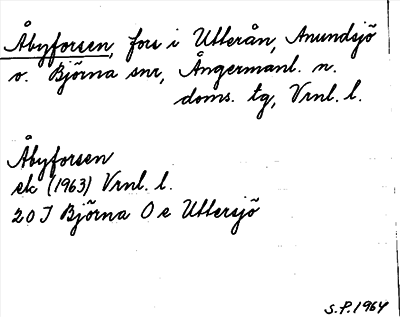 Åbyforsen, fors i Utterån, Anundsjö
o. Björna snr, Ångermanl. n.
doms. tg, Vrnl. l.
Åbyforsen
ek (1963) Vrnl. l.
20 J Björna O e Uttersjö
S.P. 1964